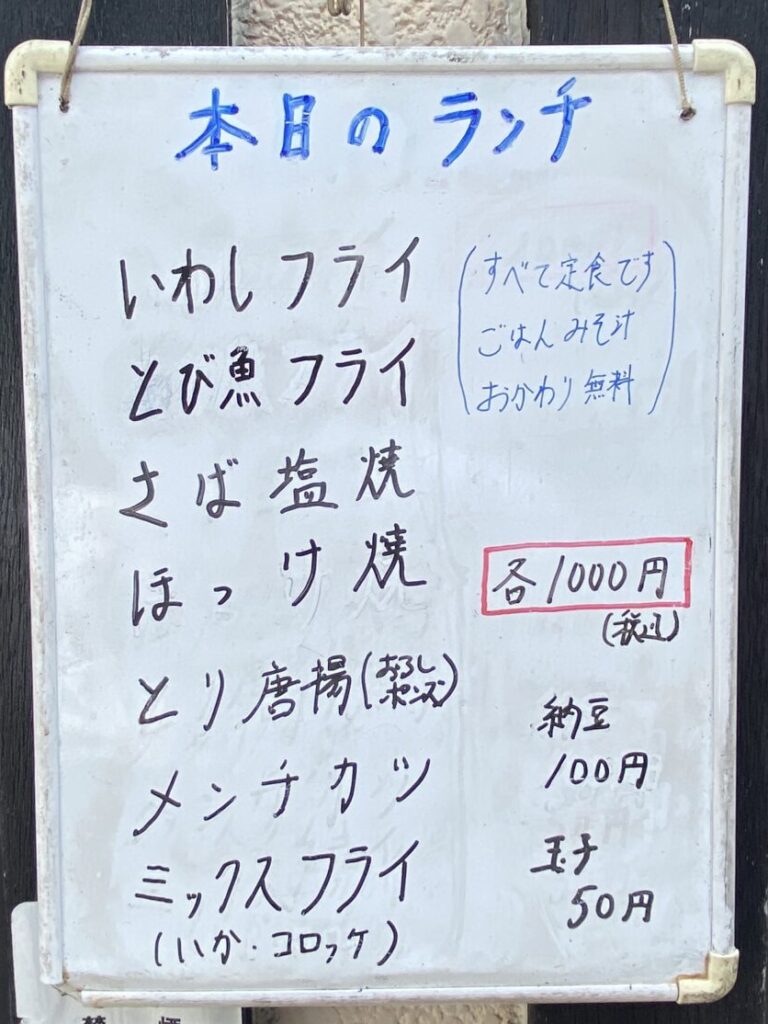 本日のランチ
いわしフライ
とび魚フライ
さば塩焼
ほっけ焼
とり唐揚(おろしポンズ)
メンチカツ
ミックスフライ
(いか・コロッケ)
(すべて定食です
ごはんみそ汁
おかわり無料)
各1000円
(税込)
納豆
100円
玉子
50円